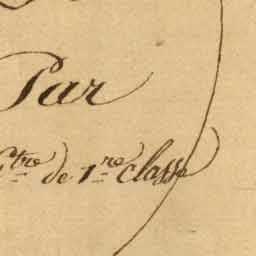 Par
Gtre de 1re classe